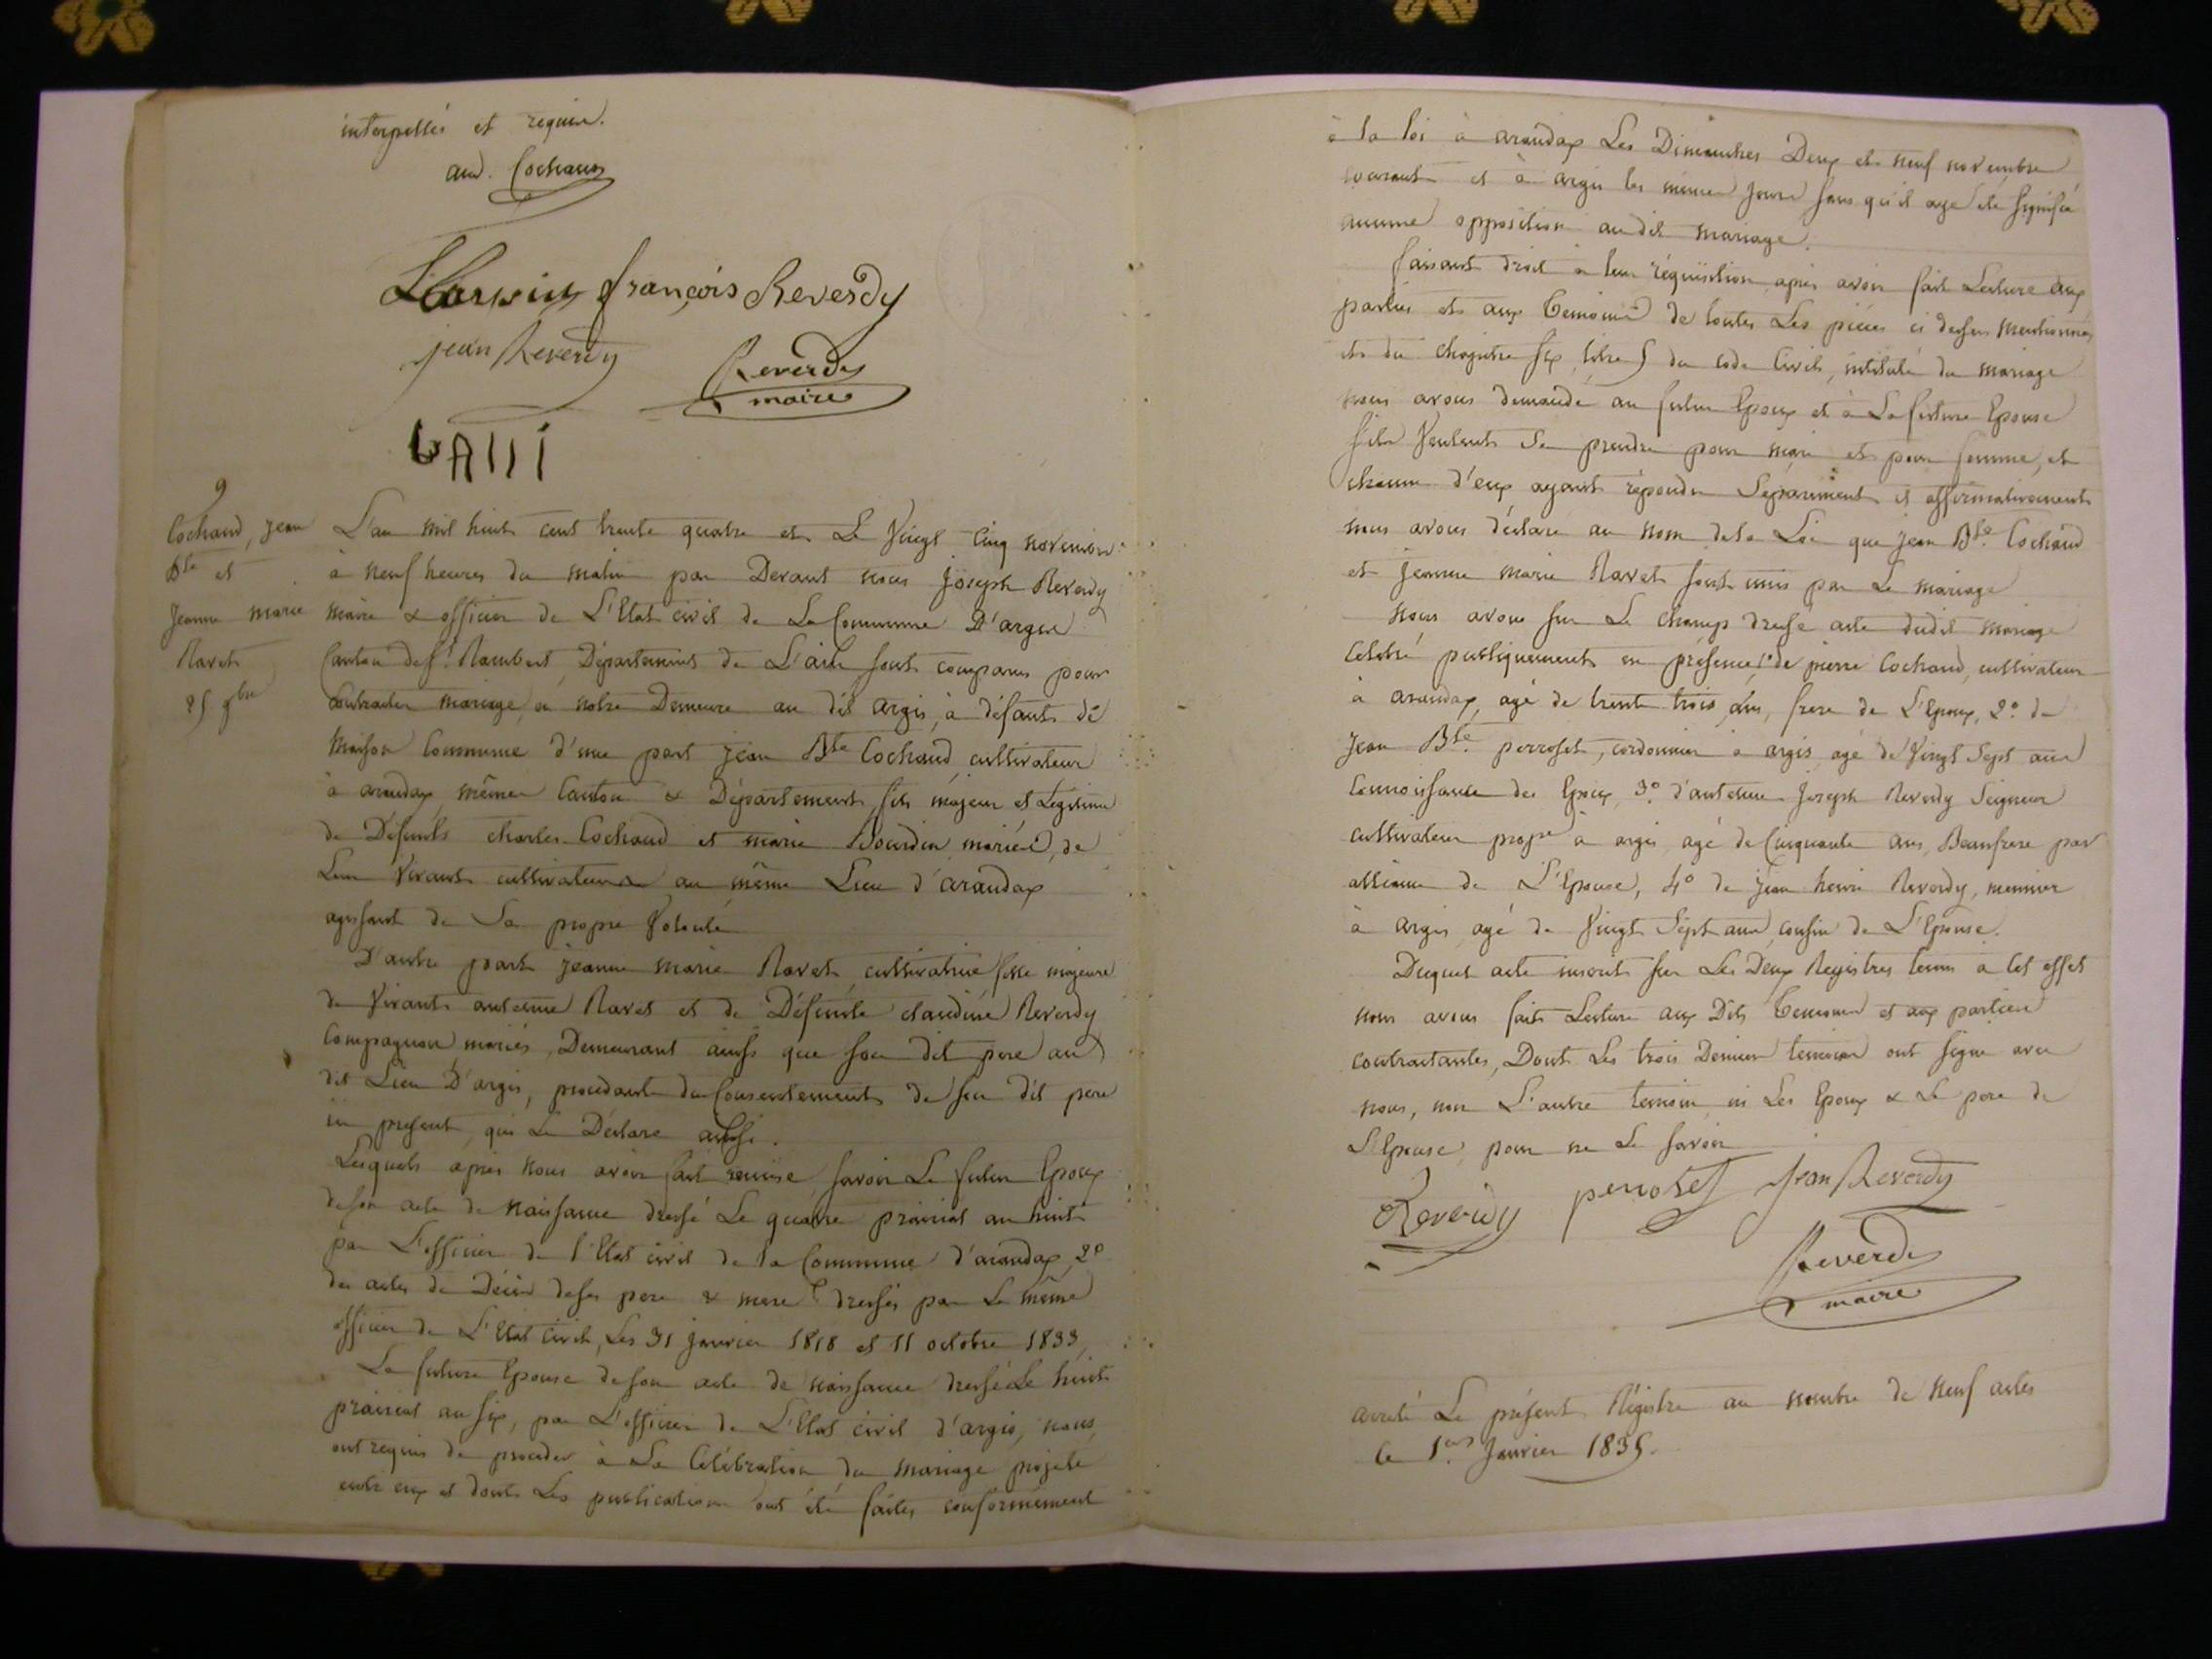 interpellés et requis.
and. Cochaud
François Reverdy
jean Reverdy
Reverdy
maire
9
Cochaud, jean
Bte et
Jeanne marie
Ravet
25 9bre
L'an mil huit cent trente quatre et Le Vingt cinq novembre
à neuf heures du matin par Devant nous joseph Reverdy
maire & officier de L'Etat civil de La Commune D'argis
Canton de St. Rambert, Département de L'ain sont comparus pour
Contracter mariage, en notre Demeure au dit argis, à défaut de
Maison Commune d'une part jean Bte Cochaud cultivateur
à arandax même Canton & Département, fils majeur et Légitime
de Défunts charles Cochaud et marie Bourdin mariés, de
Leur Vivant cultivateurs au même Lieu d'arandax
agissant de Sa propre Volonté
D'autre part jeanne marie Ravet, cultivatrice fille majeure
de Vivant antelme Ravet et de Défunte claudine Reverdy
Compagnon mariés, Demeurant ainsi que son dit pere au
dit Lieu D'argis, procédant du Consentement de son dit pere
ici présent, qui Le Déclare aussi.
Lesquels après nous avoir fait remise, savoir Le futur Epoux
de son acte de Naissance dressé Le quatre prairial an huit
par L'officier de l'Etat civil de la Commune d'arandax, 2°
des actes de Décès de ses pere & mere dressés par Le même
officier de L'Etat Civil, Les 31 janvier 1818 et 11 octobre 1833,
La future Epouse de son acte de naissance dressé Le huit
prairial an six, par L'officier de L'Etat civil d'argis, nous
ont requis de proceder à La Célébration du mariage projeté
entr'eux et dont Les publications ont été faites conformément
à la loi à arandax Les Dimanches Deux et neuf novembre
courant et à argis les mêmes jours sans qu'il aye été signifié
aucune opposition au dit mariage.
faisant droit à leur réquisition, après avoir fait Lecture aux
parties et aux Temoins de toutes Les pièces ci dessus mentionnés
et du chapitre six, titre 5 du code Civil, intitulé du mariage
nous avons demandé au futur Epoux et à La future Epouse
s'ils Veulent Se prendre pour mari et pour femme, et
chacun d'eux ayant répondu Séparément et affirmativement
nous avons déclaré au nom de la Loi que jean Bte. Cochaud
et jeanne marie Ravet sont unis par Le mariage
Nous avons sur Le champ dressé acte dudit mariage
Célébré publiquement en présence 1° de pierre Cochaud, cultivateur
à arandax, agé de trente trois ans, frere de L'Epoux, 2° de
Jean Bte. perroset, cordonnier à argis agé de Vingt Sept ans
Connoissance des Epoux, 3° d'antelme joseph Reverdy Seigneur
cultivateur propre à argis, agé de Cinquante ans, Beaufrere par
alliance de L'Epouse, 4° de jean henri Reverdy, meunier
à argis agé de Vingt Sept ans, cousin de L'Epouse.
Duquel acte inscrit sur Les Deux Registres tenus à Cet effet
nous avons fait Lecture aux Dits Temoins et aux parties
contractantes, Dont Les trois Derniers temoins ont signé avec
nous, non L'autre temoin ni Les Epoux & Le pere de
L'Epouse, pour ne Le savoir
Reverdy perroset Jean Reverdy
Reverdy
maire
arrété Le présent Régistre au nombre de Neuf actes
le 1er. Janvier 1835.